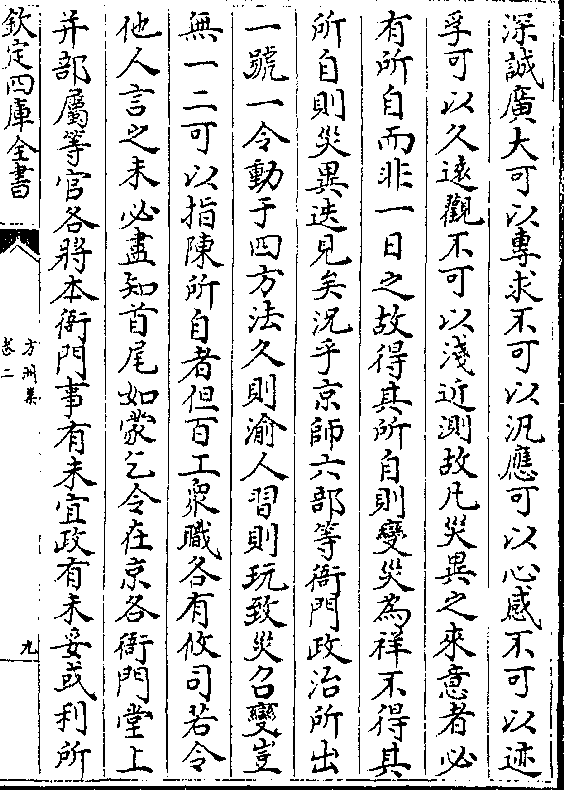 深誠廣大可以專求不可以汎應可以心感不可以迹
孚可以久遠觀不可以淺近測故凡災異之來意者必
有所自而非一日之故得其所自則變災為祥不得其
所自則災異迭見矣況乎京師六部等衙門政治所出
一號一令動于四方法久則渝人習則玩致災召變豈
無一二可以指陳所自者但百工衆職各有攸司若令
他人言之未必盡知首尾如蒙乞令在京各衙門堂上
并部屬等官各將本衙門事有未宜政有未妥或利所
欽定四庫全書
方洲集
卷二
九